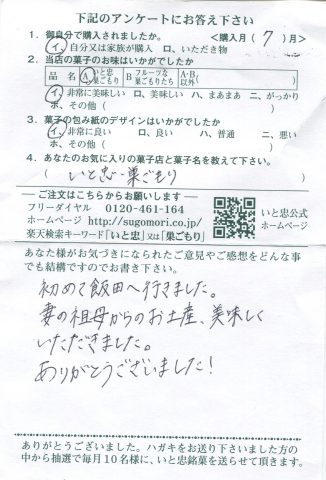 下記のアンケートにお答え下さい
1. 御自分で購入されましたか。 <購入月( 7 )月>
イ、自分又は家族が購入 ロ、いただき物
2. 当店の菓子のお味はいかがでしたか
品名 A いと忠巣ごもり B フルーツな巣ごもりたち A・B以外( )
イ、非常に美味しい ロ、美味しい ハ、まあまあ ニ、がっかり
ホ、その他( )
3. 菓子の包み紙のデザインはいかがでしたか
イ、非常に良い ロ、良い ハ、普通 ニ、悪い
ホ、その他( )
4. あなたのお気に入りの菓子店と菓子名を教えて下さい。
( いと忠・巣ごもり )
ご注文はこちらからお願いします
フリーダイヤル 0120-461-164
ホームページ http://sugomori.co.jp/
楽天検索キーワード「いと忠」又は「巣ごもり」
いと忠公式
ホームページ
あなた様がお気づきになられたご意見やご感想をどんな事
でも結構ですのでお書き下さい。
初めて飯田へ行きました。
妻の祖母からのお土産、美味しく
いただきました。
ありがとうございました!
ありがとうございました。ハガキをお送り下さいました方の
中から抽選で毎月10名様に、いと忠銘菓を送らせて頂きます。